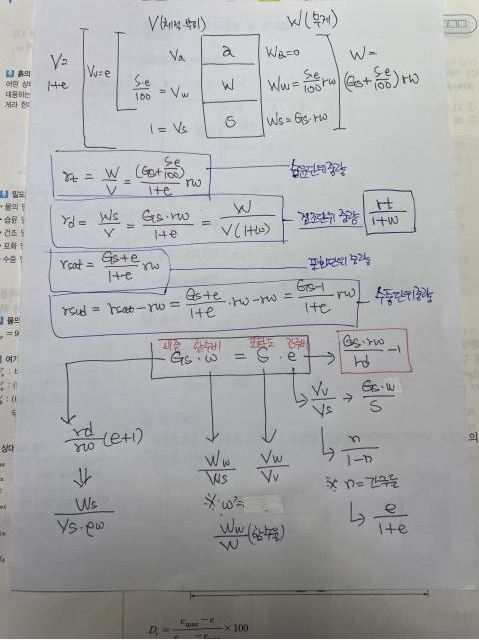 V(체적·부피) W(무게)
V= 1+e
Vv=e
Va a Wa=0
S·e/100 = Vw W Ww=S·e/100 rw
1=Vs S Ws=Gs·rw
W= (Gs+S·e/100)rw
rt = W/V = (Gs+S·e/100)/1+e rw 습윤단위중량
rd = Ws/V = Gs·rw/1+e = W/V(1+w) 건조단위중량 rt/1+w
rsat = Gs+e/1+e rw 포화단위중량
rsub = rsat-rw = Gs+e/1+e·rw-rw = Gs-1/1+e rw 수중단위중량
비중 함수비 포화도 간극비
Gs·w = S·e → Gs·rw/rd -1
Vv/Vs → Gs·w/S
rd/rw (e+1)
Ww/Ws Vw/Vv n/1-n
※ n=간극률
Ws/Vs·ρw
※ w'=
Ww/W (함수율)
e/1+e
Dr = emax-e/emax-emin ×100